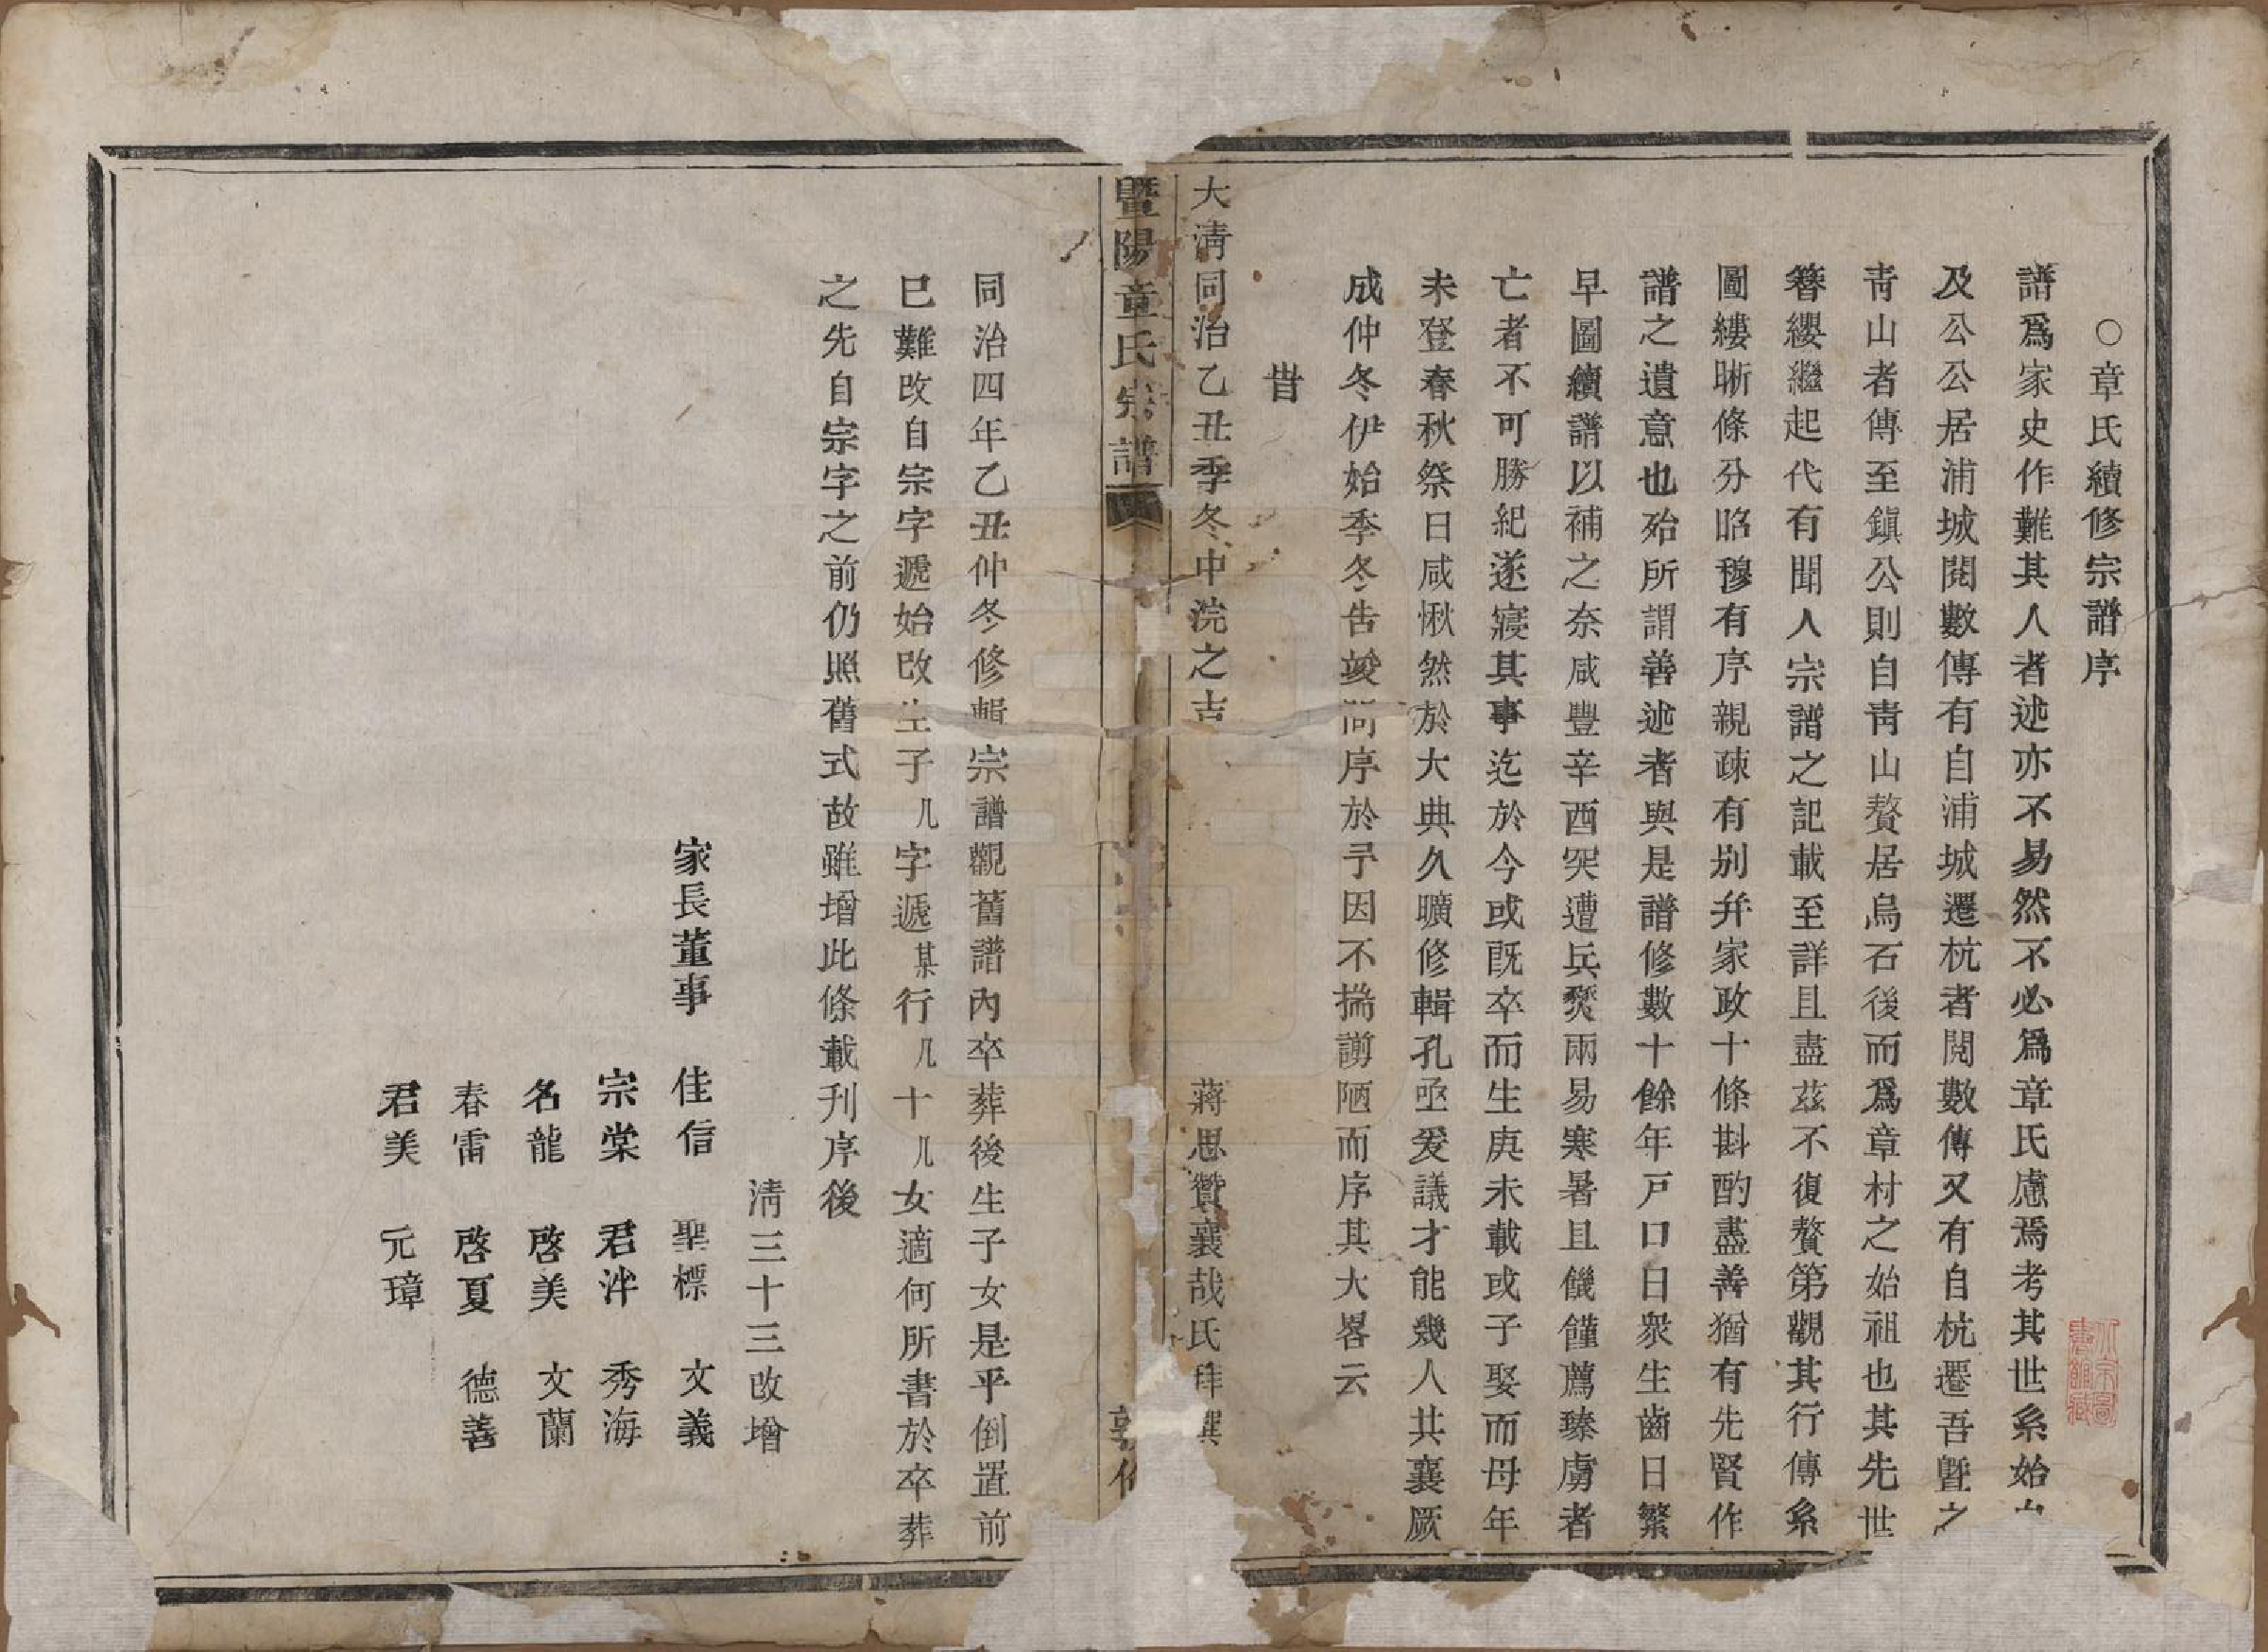 ○章氏續修宗譜序
譜爲家史作難其人者述亦不易然不必爲章氏慮焉考其世系始
及公公居浦城閱數傳有自浦城遷杭者閱數傳又有自杭遷吾曁之
靑山者傳至鎭公則自靑山贅居烏石後而爲章村之始祖也其先世
簪纓繼起代有聞人宗譜之記載至詳且盡茲不復贅第觀其行傳系
圖縷晰條分昭穆有序親疎有别幷家政十條斟酌盡善猶有先賢作
譜之遺意也殆所謂善述者與是譜修數十餘年戸口日衆生齒日繁
早圖續譜以補之奈咸豐辛酉突遭兵燹兩易寒暑且饑饉薦臻虜者
亡者不可勝紀遂寢其事迄於今或旣卒而生庚未載或子娶而母年
未登春秋祭日咸愀然於大典久曠修輯孔亟爰議才能幾人共襄厥
成仲冬伊始季冬吿竣問序於予因不揣謭陋而序其大畧云
旹
大淸同治乙丑季冬中浣之吉 蔣思贊襄哉氏拜撰
暨陽章氏宗譜
同治四年乙丑仲冬修輯宗譜觀舊譜內卒葬後生子女是乎倒置前
已難改自宗字遞始改生子几字遞某行几十几女適何所書於卒葬
之先自宗字之前仍照舊式故雖增此條載刋序後
淸三十三改增
家長董事 佳信 聖標 文義
宗棠 君泮 秀海
名龍 啓美 文蘭
春雷 啓夏 德善
君美 元璋